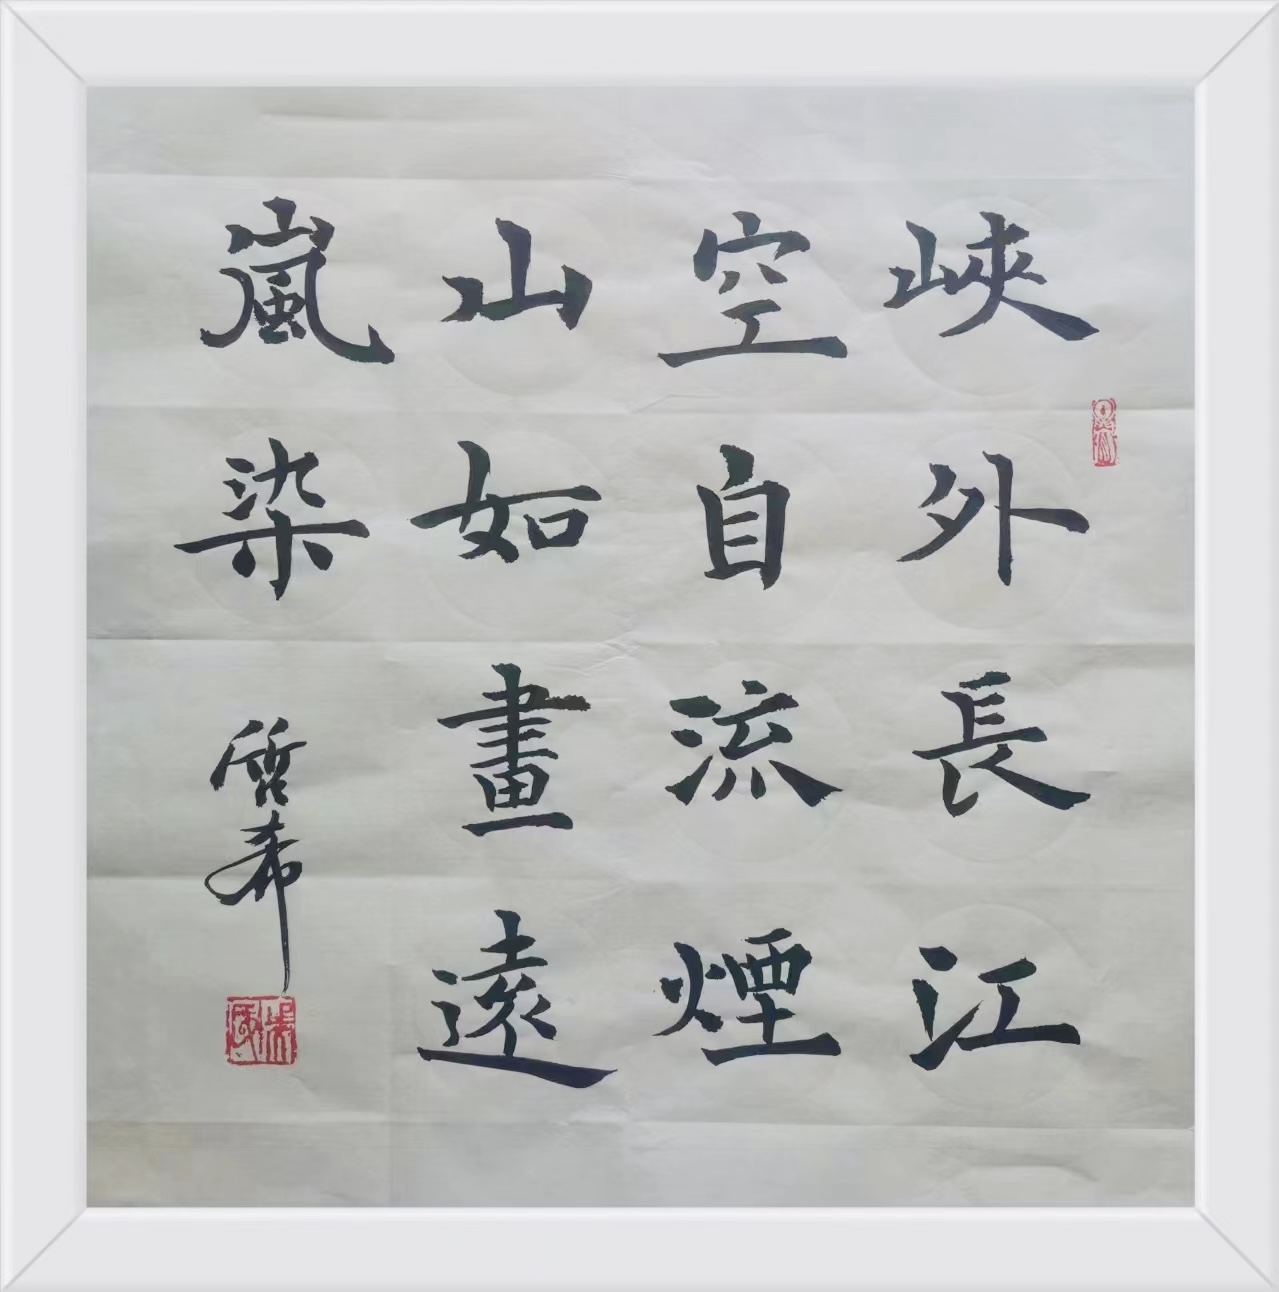 峽外長江
空自流煙
山如畫遠
嵐染
哲希